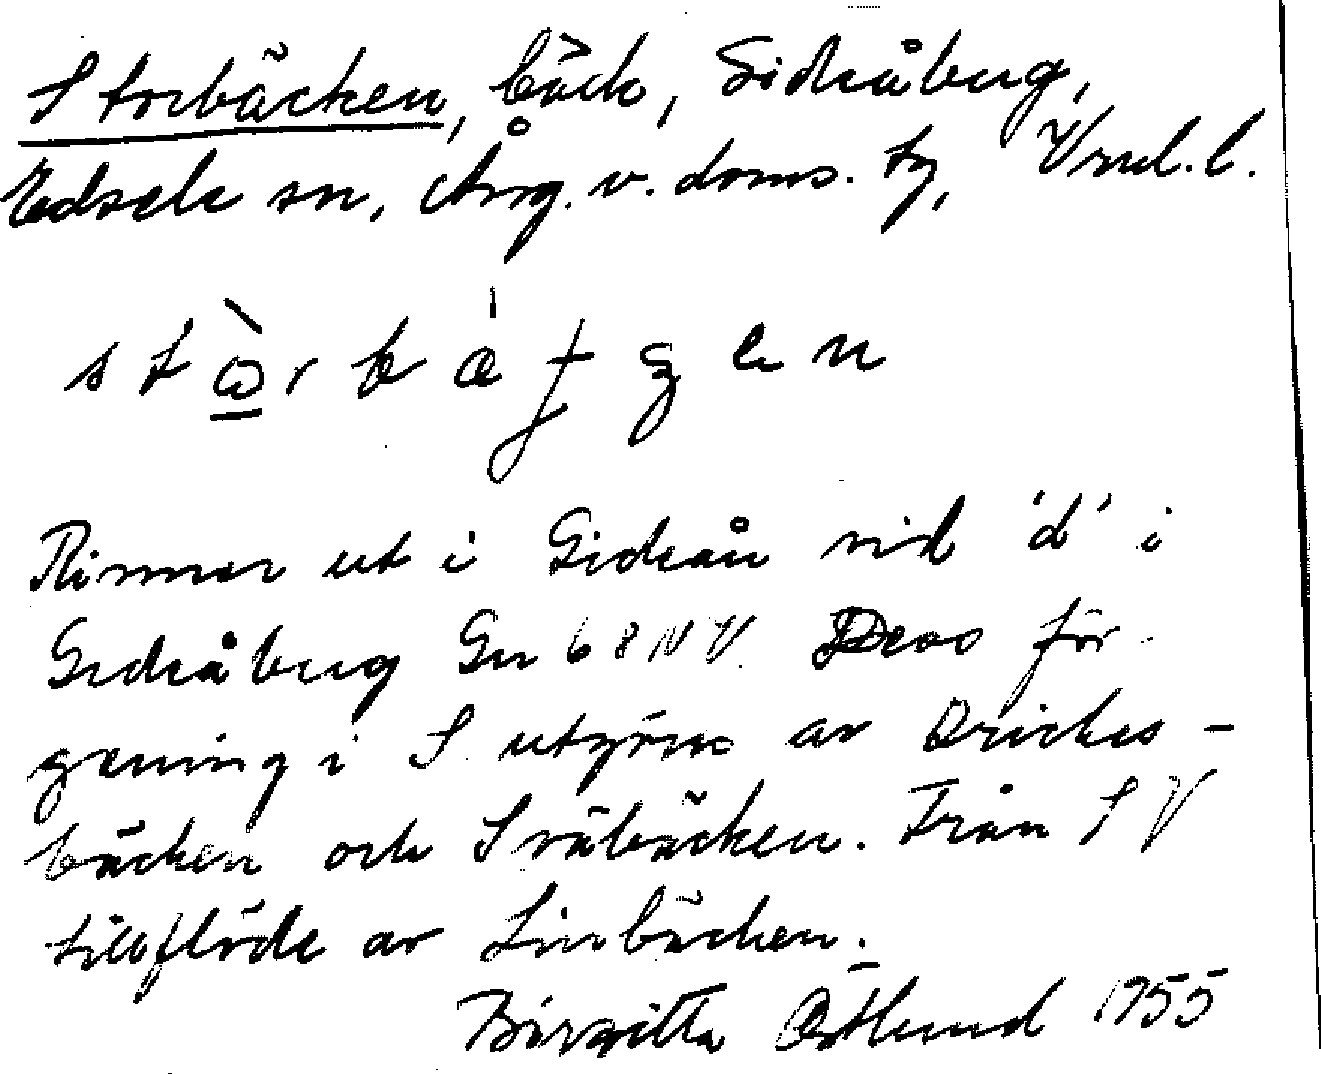 Storbäcken, bäck, Gideåberg,
Edsele sn, Ång. v. doms. tg, Vrnl. l.
Rinner ut i Gideån vid 'd' i
Gideåberg Gn 68 NV. Dess för-
grening i S utgöres av Orickes-
bäcken och Svábäcken. Från SV
tillflöde av Linbäcken.
Birgitta Östlund 1955